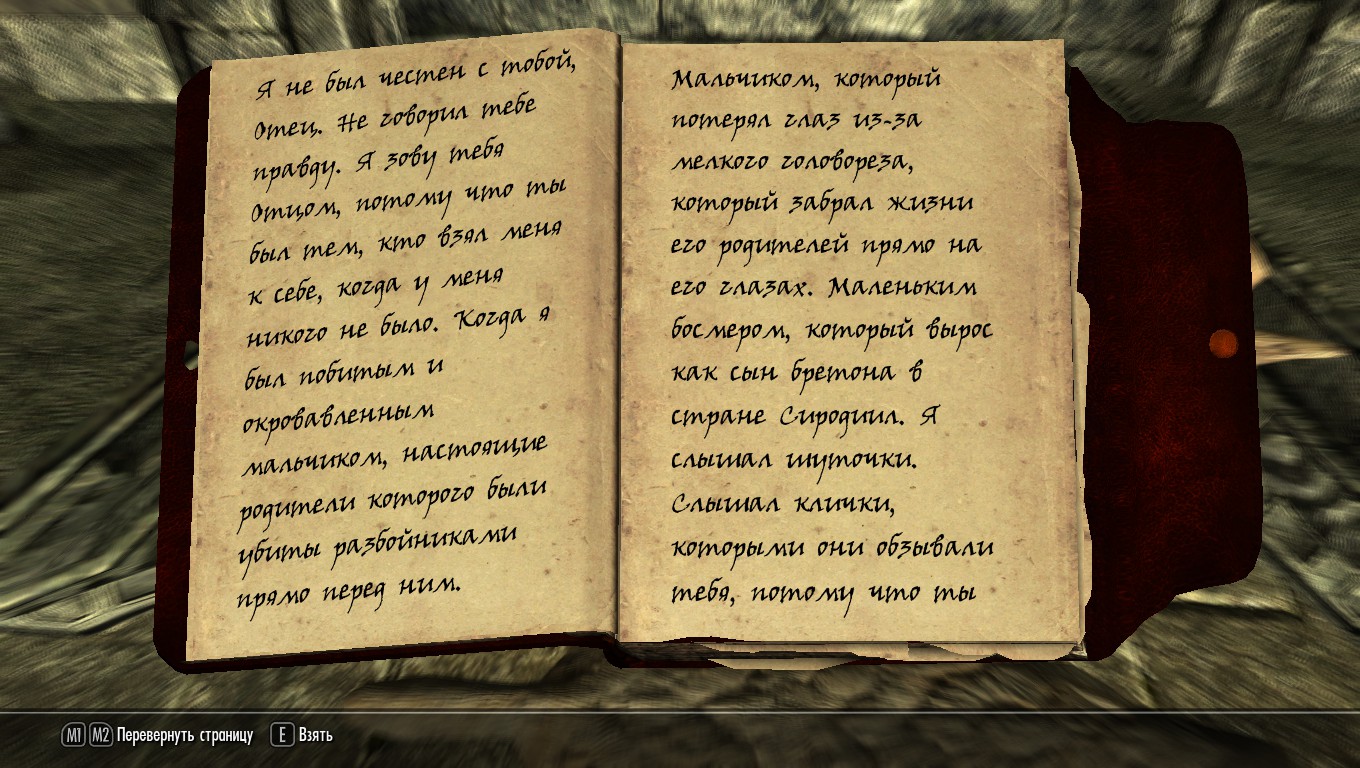 Я не был честен с тобой,
Отец. Не говорил тебе
правду. Я зову тебя
Отцом, потому что ты
был тем, кто взял меня
к себе, когда у меня
никого не было. Когда я
был побитым и
окровавленным
мальчиком, настоящие
родители которого были
убиты разбойниками
прямо перед ним.
Мальчиком, который
потерял глаз из-за
мелкого головореза,
который забрал жизни
его родителей прямо на
его глазах. Маленьким
босмером, который вырос
как сын бретона в
стране Сиродиил. Я
слышал шуточки.
Слышал клички,
которыми они обзывали
тебя, потому что ты
M1 M2 Перевернуть страницу E Взять